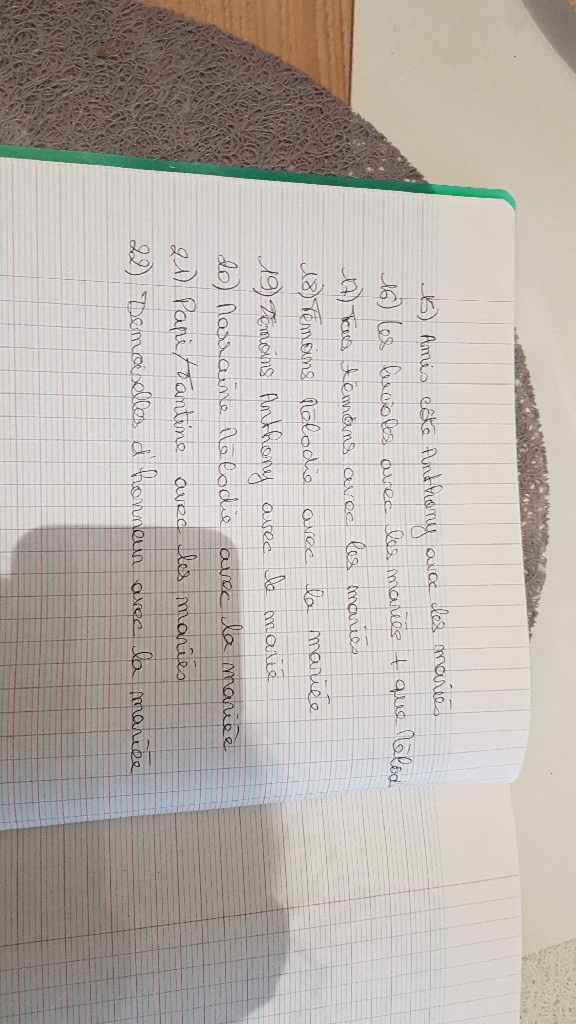 15) Amis côté Anthony avec les mariés
16) Les lucioles avec les mariés + que Mélod
17) Tous témoins avec les mariés
18) Témoins Mélodie avec la mariée
19) Témoins Anthony avec le marié
20) Marraine Mélodie avec la mariée
21) Papi/Tantine avec les mariés
22) Demoiselles d'honneur avec la mariée